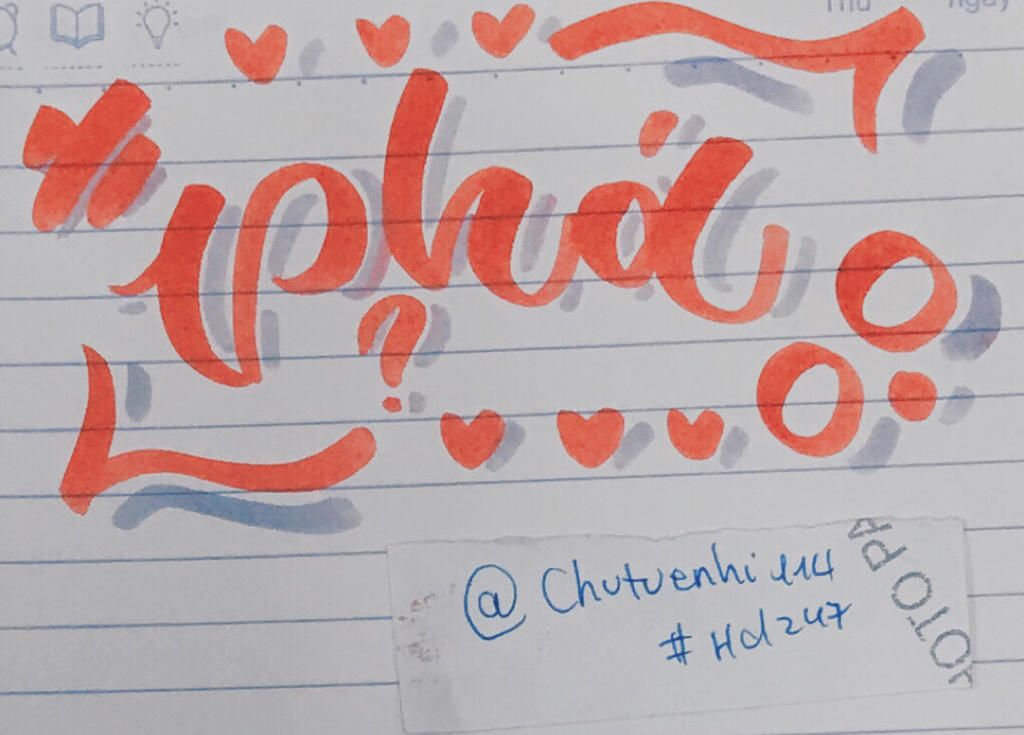 Thứ ngày
phá
?
@Chutuenhi114
#Hd247